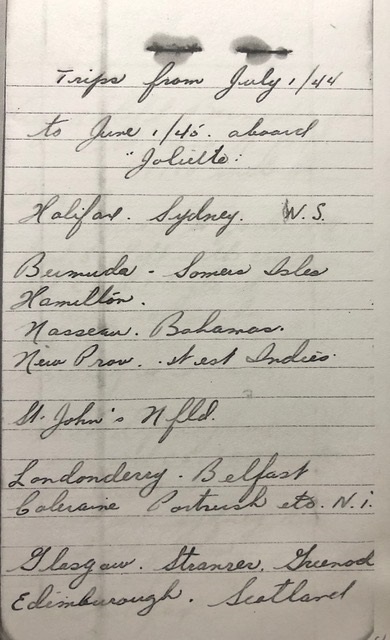 Trips from July 1/44
to June 1/45. aboard
"Joliette:
Halifax. Sydney. N.S.
Bermuda - Somers Isles
Hamilton.
Nassau. Bahamas.
New Prov. . West Indies.
St. John's Nfld.
Londonderry. Belfast
Coleraine Portrush etc. N.I.
Glasgow. Stranrer. Greenock
Edimburough. Scotland